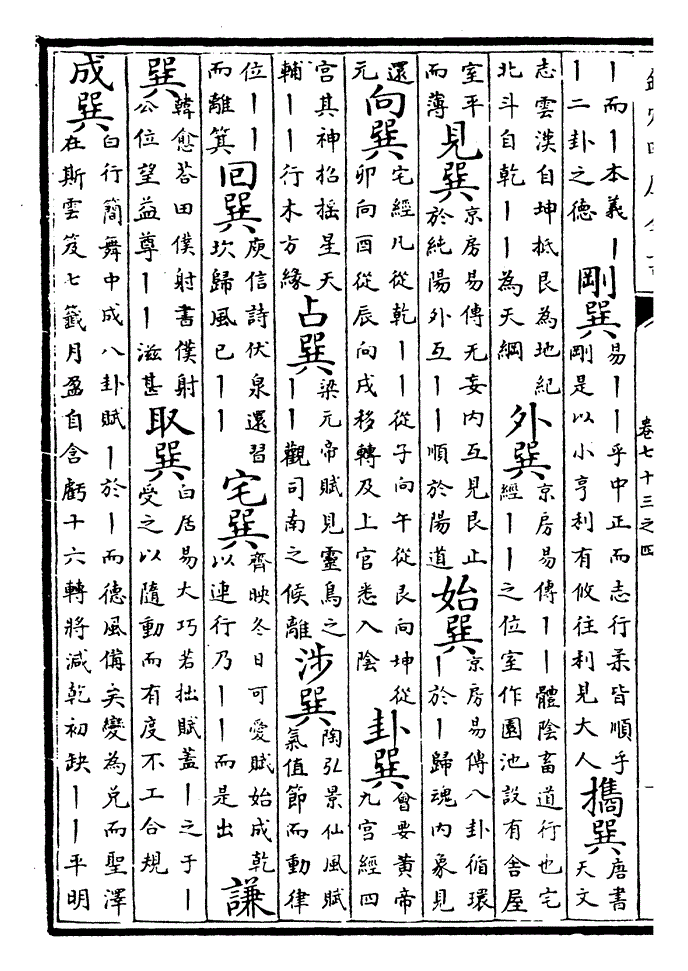 欽定四庫全書
卷七十三之四
丨而丨本義丨
丨二卦之德
剛巽
易丨丨乎中正而志行柔皆順乎
剛是以小亨利有攸往利見大人
攜巽
唐書
天文
志雲漢自坤抵艮為地紀
北斗自乾丨丨為天綱
外巽
京房易傳丨丨體陰畜道行也宅
經丨丨之位室作園池設有舍屋
室平
而薄
見巽
京房易傳无妄内互見艮止
於純陽外互丨丨順於陽道
始巽
京房易傳八卦循環
丨於丨歸魂内象見
還
元
向巽
宅經凡從乾丨丨從子向午從艮向坤從
卯向酉從辰向戌移轉及上官悉入陰
卦巽
會要黃帝
九宮經四
宮其神招搖星天
輔丨丨行木方緣
占巽
梁元帝賦見靈鳥之
丨丨觀司南之候離
涉巽
陶弘景仙風賦
氣值節而動律
位丨丨
而離箕
回巽
庾信詩伏泉還習
坎歸風已丨丨
宅巽
齊映冬日可愛賦始成乾
以連行乃丨丨而是出
謙
巽
韓愈荅田僕射書僕射
公位望益尊丨丨滋甚
取巽
白居易大巧若拙賦蓋丨之于丨
受之以隨動而有度不工合規
成巽
白行簡舞中成八卦賦丨於丨而德風備矣變為兑而聖澤
在斯雲笈七籤月盈自含虧十六轉將減乾初缺丨丨平明